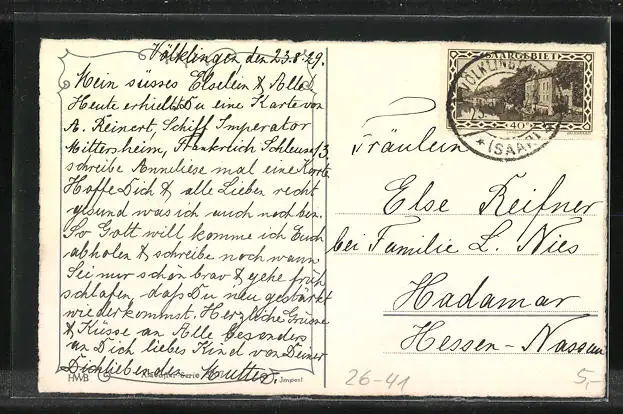 Völklingen den 23.8.29.
Mein süsses Elselein & Alle!
Heute erhielt Du eine Karte von
A. Reinert, Schiff Imperator
Mittersheim, Frankreich Schleuse 13
schreibe Anneliese mal eine Karte
Hoffe Dich & alle Lieben recht
gesund was ich auch noch bin.
So Gott will komme ich Euch
abholen & schreibe noch wann
Sei nur schön brav & gehe früh
schlafen, daß Du neu gestärkt
wiederkommst. Herzliche Grüsse
& Küsse an Alle besonders
an Dich liebes Kind von Deiner
Dichliebenden Mutter.
HWB
Serie
Import
SAARGEBIET
40
VÖLKLINGEN
* (SAAR) *
Fräulein
Else Reifner
bei Familie L. Nies
Hadamar
Hessen-Nassau
26-41
5,-